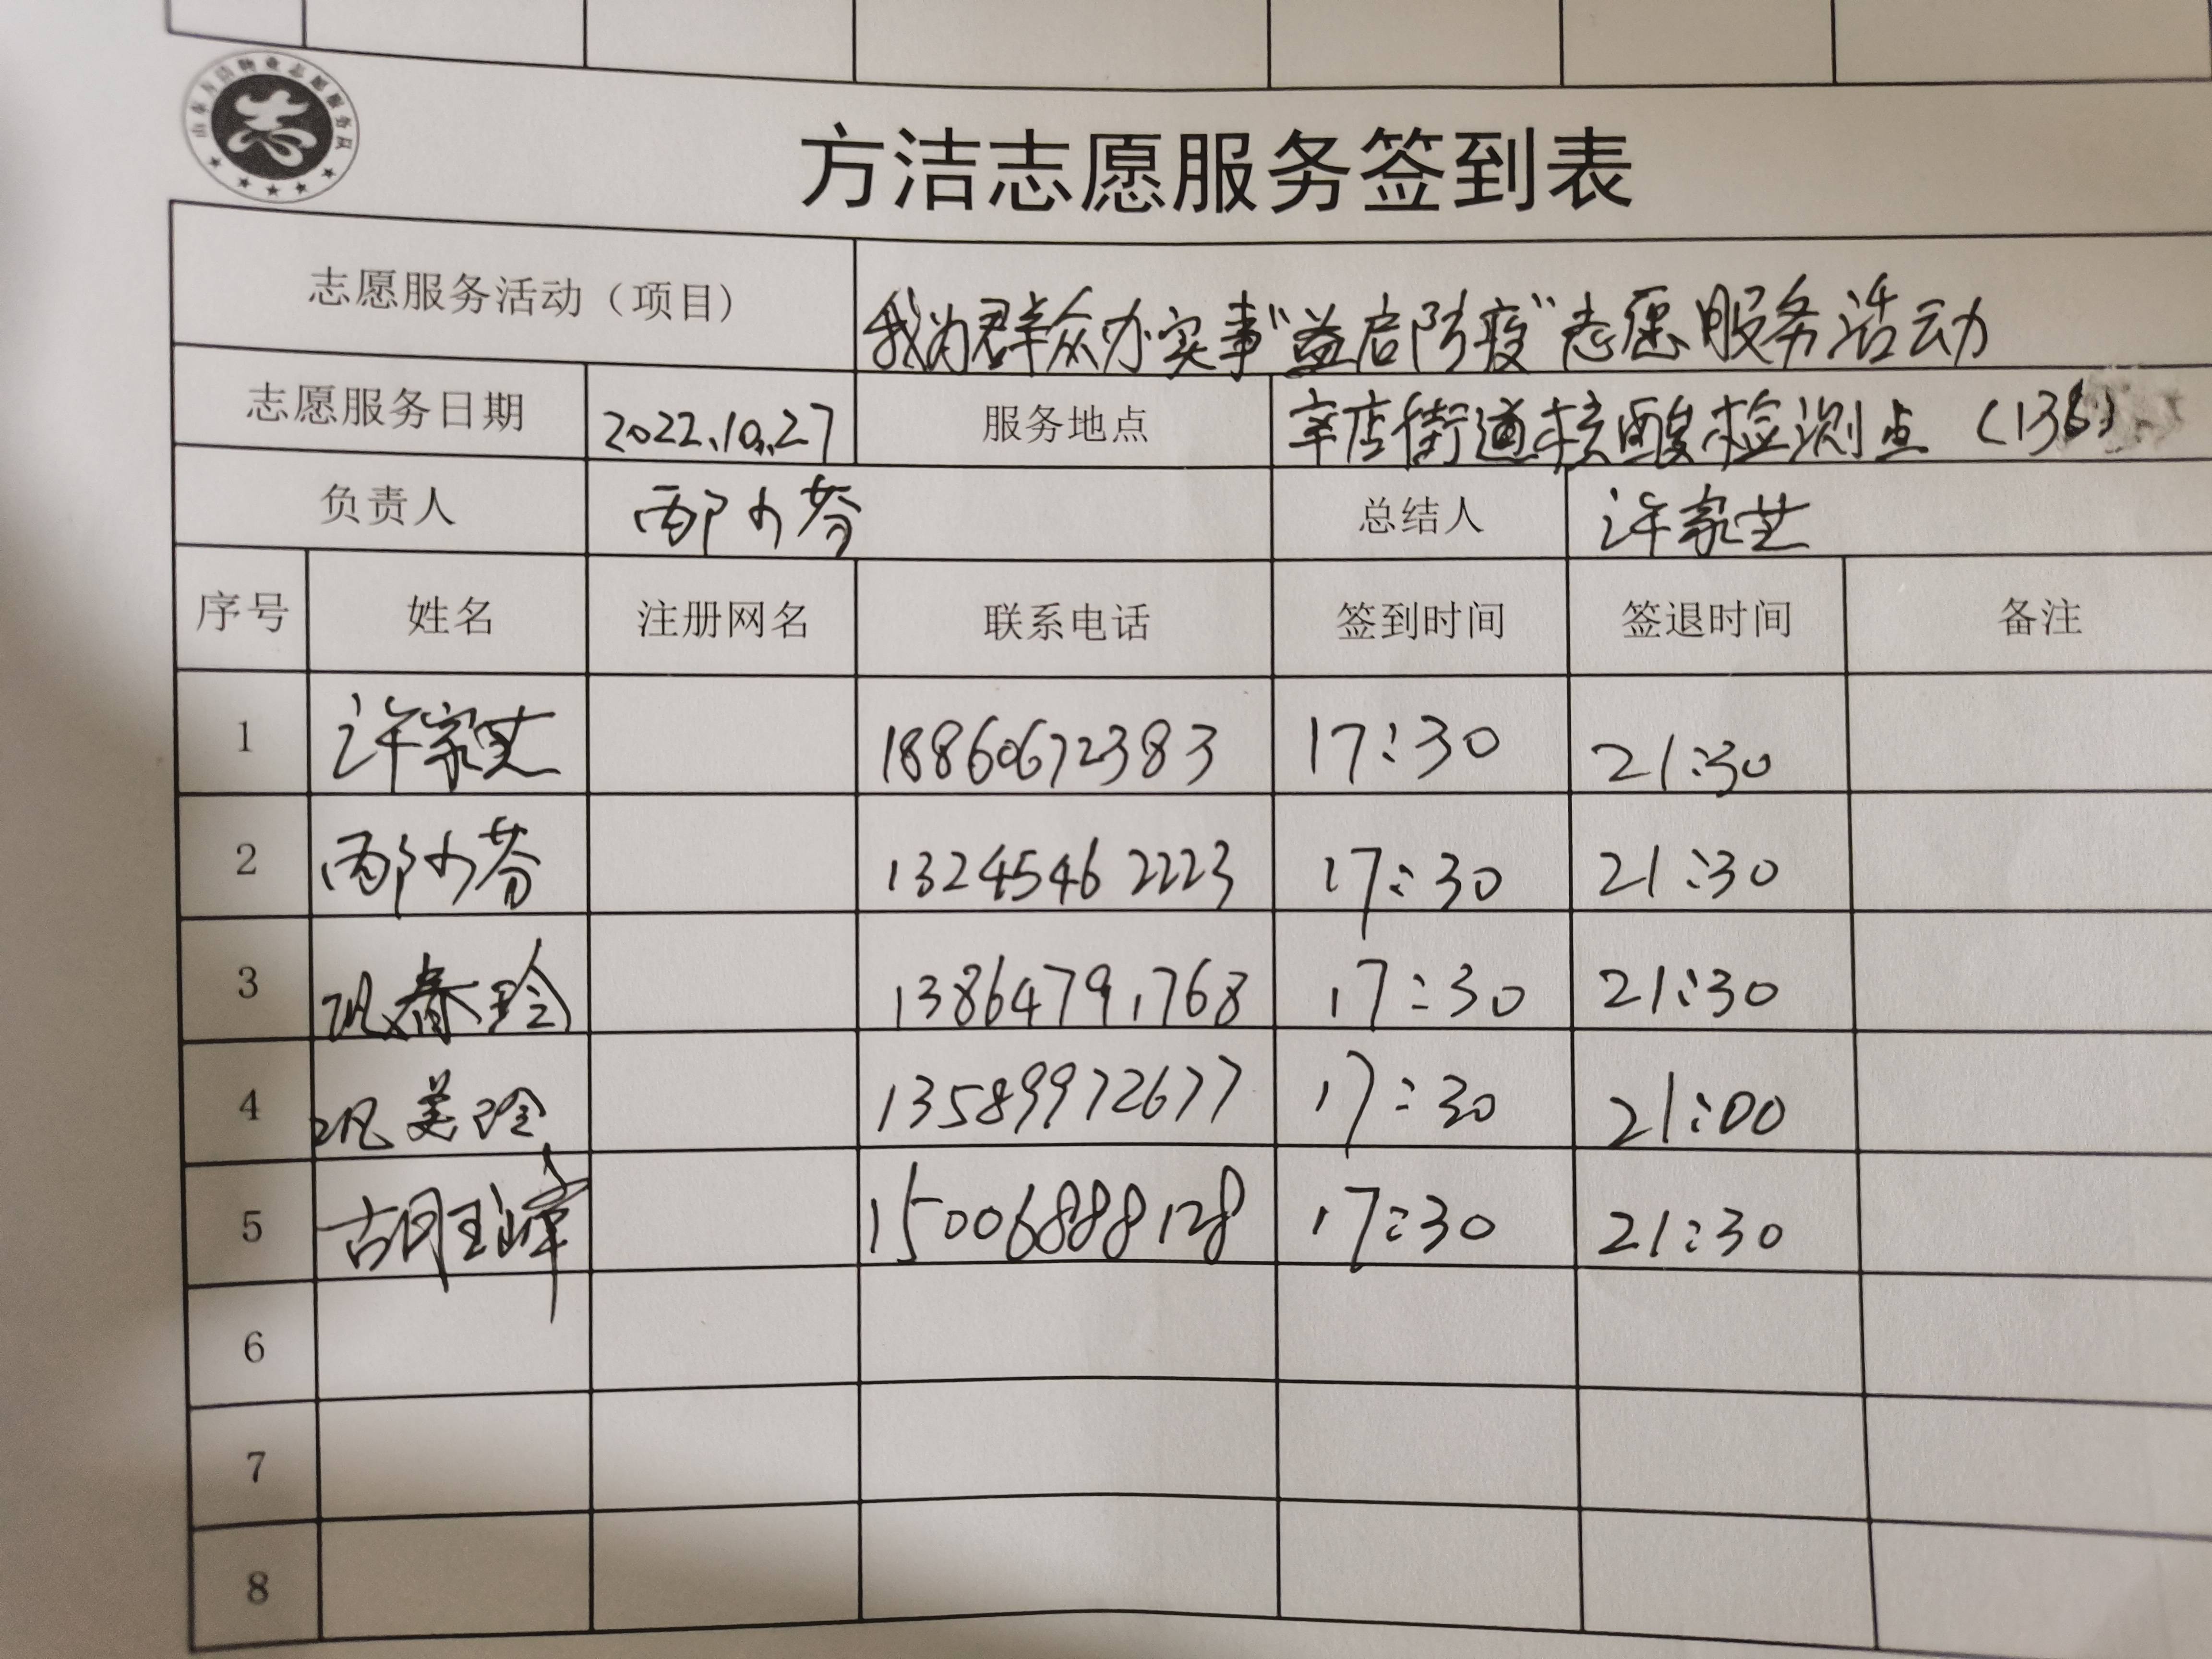 方洁志愿服务签到表
志愿服务活动（项目） 我为群众办实事“益启防疫”志愿服务活动
志愿服务日期 2022.10.27 服务地点 辛店街道核酸检测点（136）
负责人 邴小芬 总结人 许家芝
序号 姓名 注册网名 联系电话 签到时间 签退时间 备注
1 许家芝 18860672383 17:30 21:30
2 邴小芬 13245462223 17:30 21:30
3 巩春玲 13864791768 17:30 21:30
4 巩美玲 13589972677 17:30 21:00
5 胡 15006888128 17:30 21:30
6
7
8